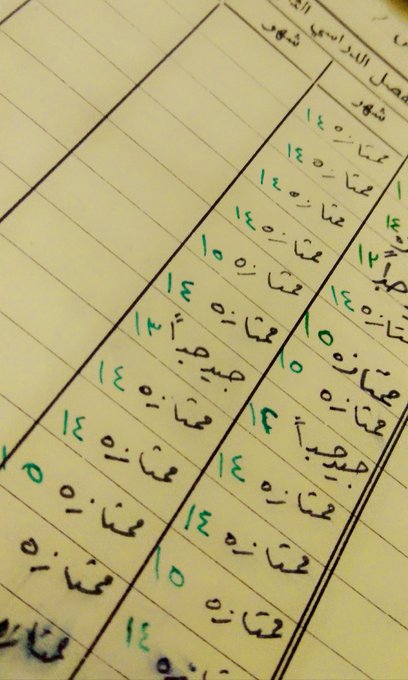 الفصل الدراسي
شهر
شهر
١٤
جداً ١٢
ممتازه ١٤
ممتازه ١٥
ممتازه ١٥
جيد جداً ١٢
ممتازه ١٤
ممتازه ١٤
ممتازه ١٥
١٤
ممتازه ١٤
ممتازه ١٤
ممتازه ١٤
ممتازه ١٤
ممتازه ١٥
ممتازه ١٤
جيد جداً ١٣
ممتازه ١٤
ممتازه ١٤
ممتازه ١٥
ممتازه